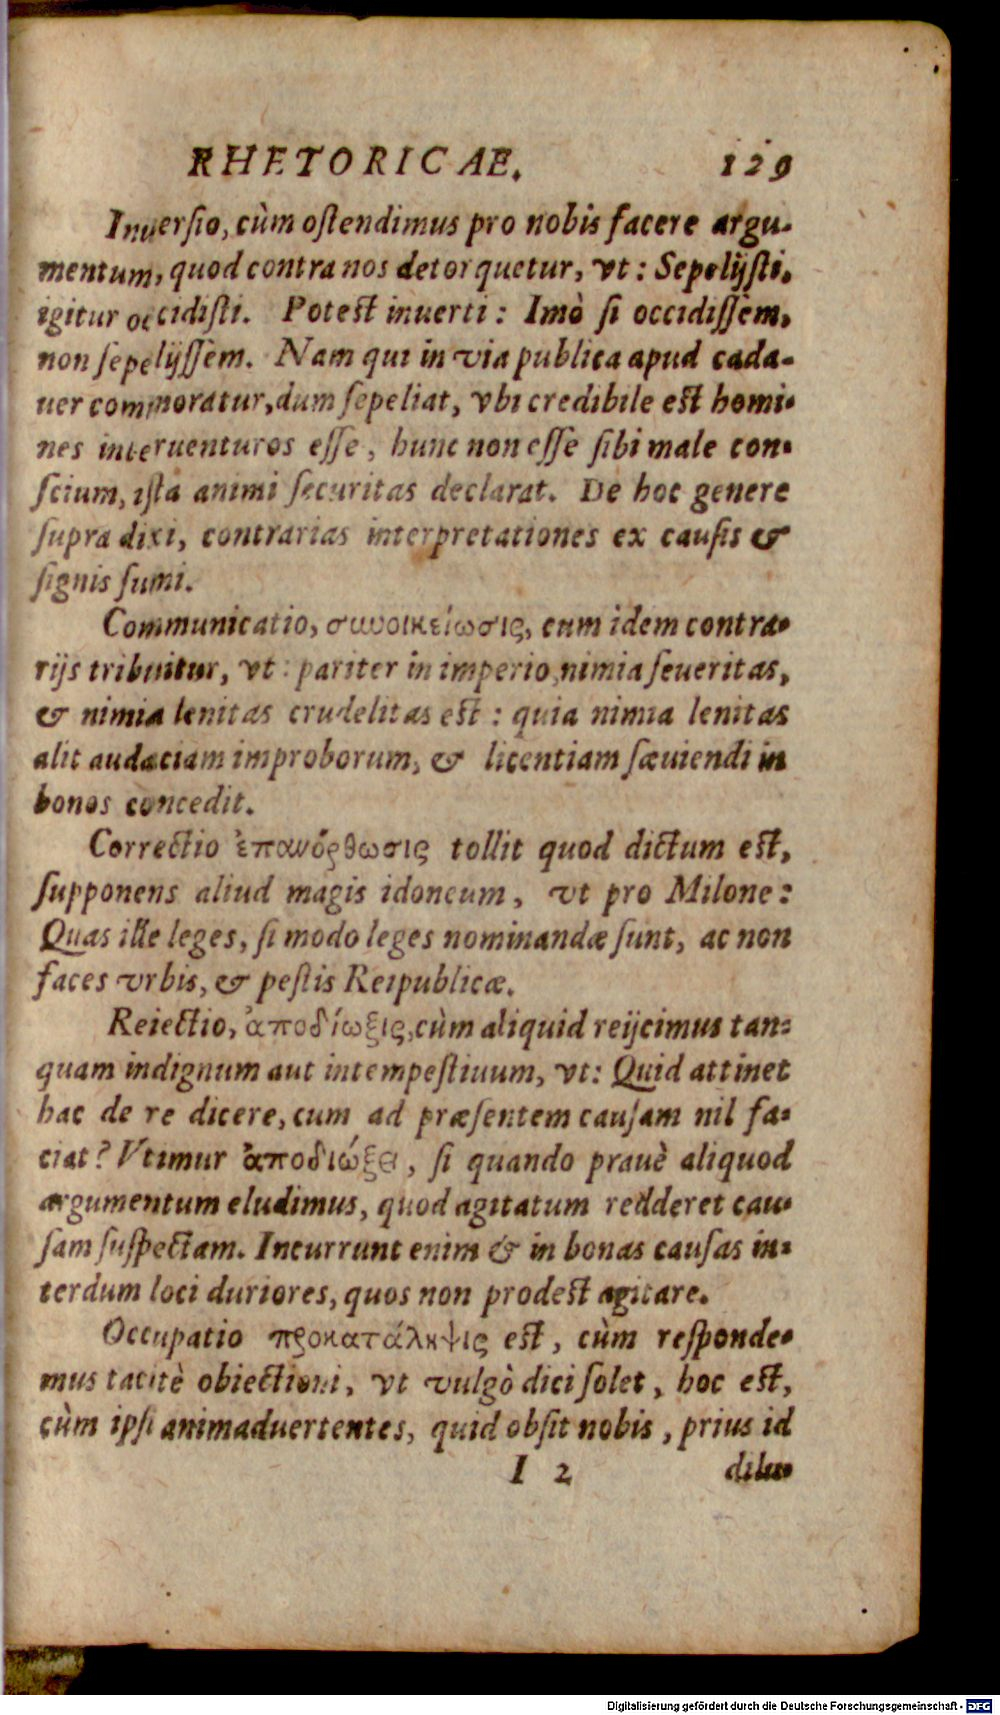 RHETORICAE. 129
Inuersio, cùm ostendimus pro nobis facere argu-
mentum, quod contra nos detorquetur, vt: Sepelijsti,
igitur occidisti. Potest inuerti: Imò si occidissem,
non sepelijssem. Nam qui in via publica apud cada-
uer commoratur, dum sepeliat, vbi credibile est homi-
nes interuenturos esse, hunc non esse sibi male con-
scium, ista animi securitas declarat. De hoc genere
supra dixi, contrarias interpretationes ex causis &
signis sumi.
Communicatio, συνοικείωσις, cum idem contra-
rijs tribuitur, vt: pariter in imperio, nimia seueritas,
& nimia lenitas crudelitas est: quia nimia lenitas
alit audaciam improborum, & licentiam sæuiendi in
bonos concedit.
Correctio ἐπανόρθωσις tollit quod dictum est,
supponens aliud magis idoneum, vt pro Milone:
Quas ille leges, si modo leges nominandæ sunt, ac non
faces vrbis, & pestis Reipublicæ.
Reiectio, ἀποδίωξις, cùm aliquid reijcimus tan-
quam indignum aut intempestiuum, vt: Quid attinet
hac de re dicere, cum ad præsentem causam nil fa-
ciat? Vtimur ἀποδιώξει, si quando prauè aliquod
argumentum eludimus, quod agitatum redderet cau-
sam suspectam. Incurrunt enim & in bonas causas in-
terdum loci duriores, quos non prodest agitare.
Occupatio προκατάληψις est, cùm responde-
mus tacitè obiectioni, vt vulgò dici solet, hoc est,
cùm ipsi animaduertentes, quid obsit nobis, prius id
I 2 dilu-
Digitalisierung gefördert durch die Deutsche Forschungsgemeinschaft - DFG